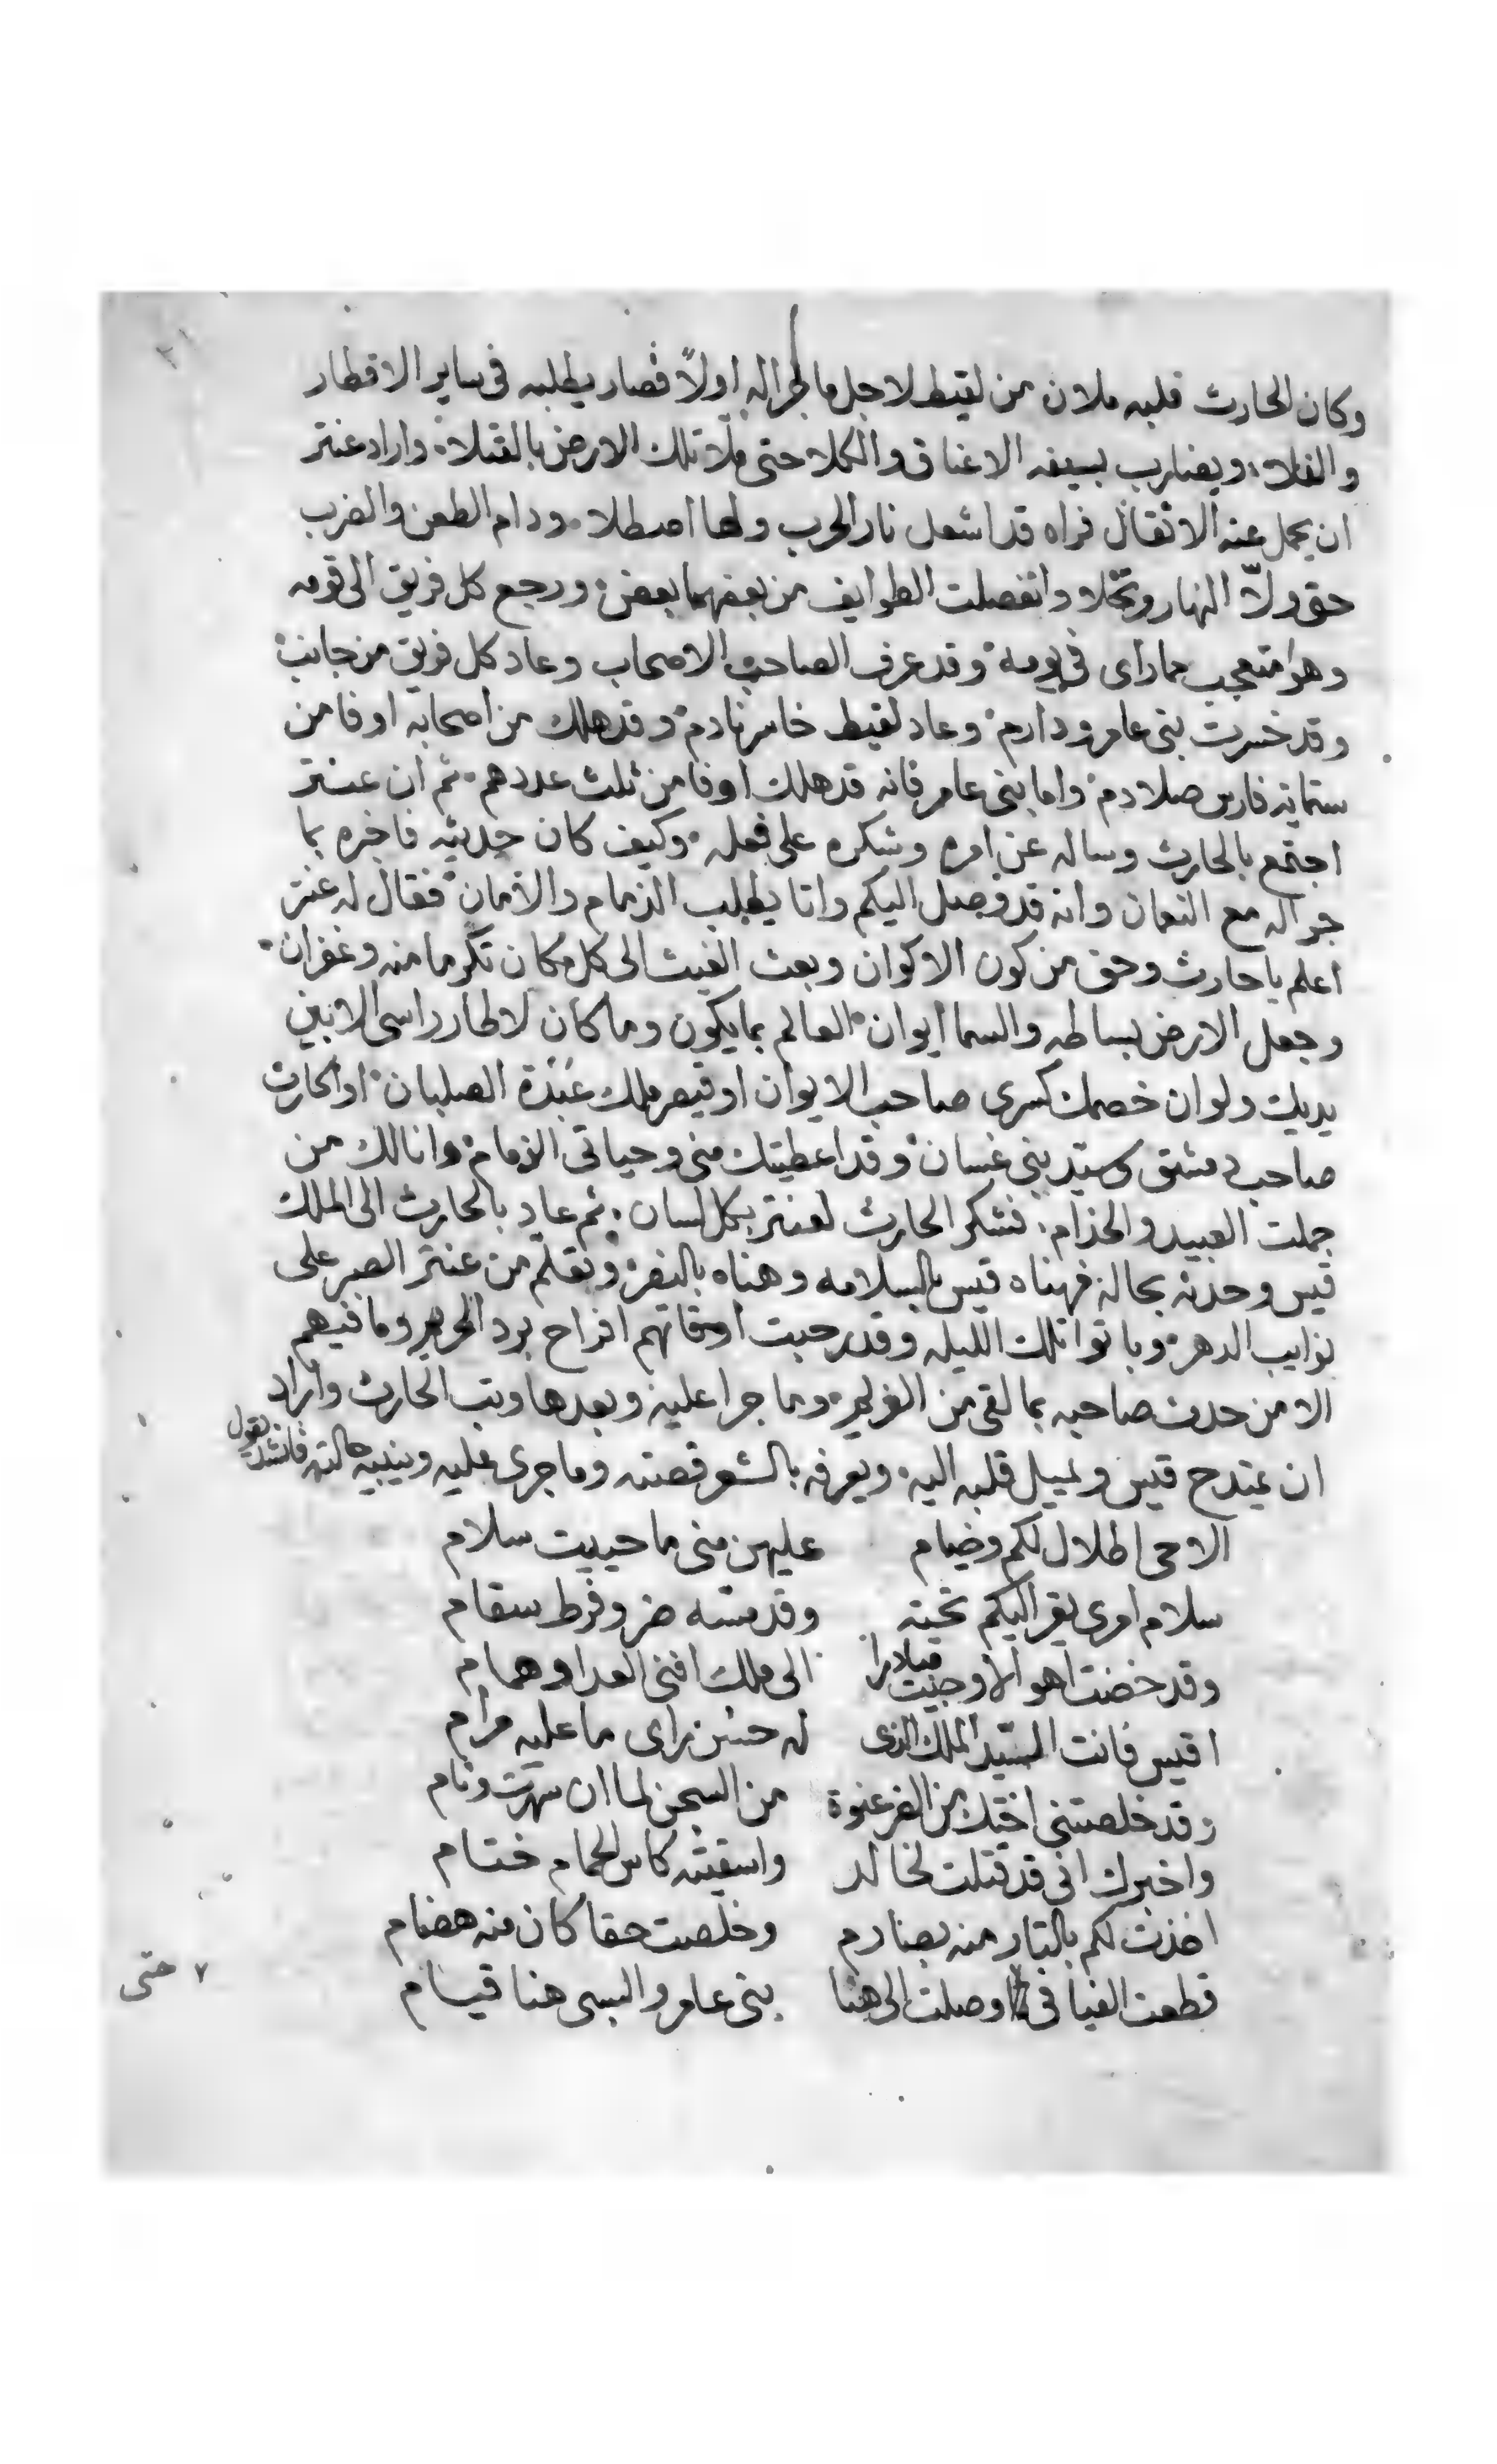 وكان الحارث قلبه ملان من لقيط لاجل ما جرا له اولاً فصار يطلبه فى ساير الاقطار
والفلا، ويضارب بسيفه الاعناق والكلا حتى ملا تلك الارض بالقتلا، واراد عنتر
ان يحمل عنه الاثقال فراه قد اشعل نار الحرب ولها اصطلا، ودام الطعن والضرب
حتى ولاّ النهار وتخلا وانفصلت الطوايف من بعضهما بعض، ورجع كل فريق الى قومه
وهو متعجب مما راى فى يومه، وقد عرف الصاحب الاصحاب وعاد كل فريق من جانب
وقد خسرت بنى عامر ودارم، وعاد لقيط خاسر نادم، وقد هلك من اصحابه اوفا من
ستماية فارس صلادم، واما بنى عامر فانه قد هلك اوفا من ثلث عددهم، ثم ان عنتر
اجتمع بالحارث وساله عن امره وشكره على فعله، وكيف كان حديثه فاخبره بما
جرا له مع النعمان وانه قد وصل اليكم واتا يطلب الذمام والامان، فقال له عنتر
اعلم يا حارث وحق من كون الاكوان وبعث الغيث الى كل مكان تكرما منه وغفران،
وجعل الارض بساطه والسما ايوان، العالم بما يكون وما كان لا طار راسى الا بين
يديك ولو ان خصمك كسرى صاحب الايوان او قيصر ملك عَبَدَة الصلبان، او الحارث
صاحب دمشق وسيّد بنى غسان، وقد اعطيتك منى وحياتى الزمام، وانا لك من
جملت العبيد والخدام، فشكر الحارث لعنتر بكل لسان، ثم عاد بالحارث الى الملك
قيس وحدثه بحاله فهناه قيس بالسلامه وهناه بالنصر، وتعلّم من عنتر الصبر على
نوايب الدهر، وباتوا تلك الليله وقد رحبت اوقاتهم افراح برد الحريم وما فيهم
الا من حدث صاحبه بما لقى من الغريم، وما جرا عليه وبعدها وثب الحارث واراد
ان يمتدح قيس ويميل قلبه اليه، ويعرفه بالشعر قصته وما جرى عليه وينبيه حالته فانشد يقول
الا حى اطلال لكم وخيام عليهن منى ما حييت سلام
سلام امرى يقرا اليكم تحيته وقد مسّه ضر وفرط سقام
وقد خضت اهوالا وجيت مبادرا الى ملك افنى العدا وهمام
اقيس فانت السيّد الملك الذى له حسن راى ما عليه مرام
وقد خلصتنى اختك من الضر عنوة من السجن لما ان سهرت ونام
واخبرك انى قد قتلت لخالد واسقيته كاس الحمام ختام
اخذت لكم بالتار منه بصارم وخلّصت حقا كان منه هضام
قطعت الفيافى وصلت الى هنا بنى عامر والبسى هنا قيام
٧ حتى